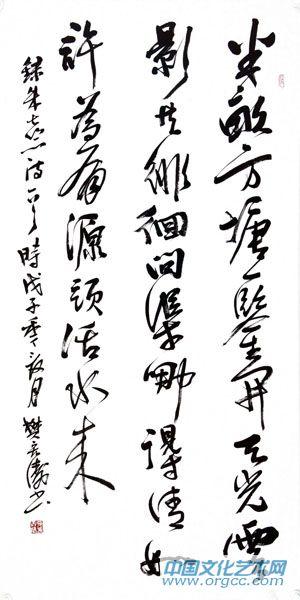 半畝方塘一鑒開天光雲
影共徘徊問渠哪得清如
許為有源頭活水來
錄朱熹詩一首時戊子季
中国文化艺术网
www.orgcc.com